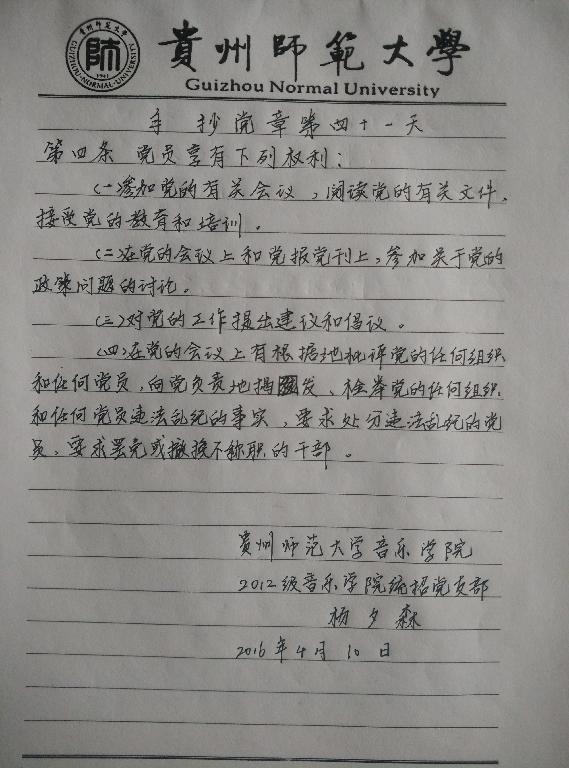 貴州師範大學
Guizhou Normal University
貴州师范大学
師
1941
GUIZHOU·NORMAL·UNIVERSITY
手抄党章第四十一天
第四条 党员享有下列权利：
(一)参加党的有关会议，阅读党的有关文件，
接受党的教育和培训。
(二)在党的会议上和党报党刊上，参加关于党的
政策问题的讨论。
(三)对党的工作提出建议和倡议。
(四)在党的会议上有根据地批评党的任何组织
和任何党员，向党负责地揭发、检举党的任何组织
和任何党员违法乱纪的事实，要求处分违法乱纪的党
员，要求罢免或撤换不称职的干部。
貴州师范大学音乐学院
2012级音乐学院统招党支部
杨夕森
2016年4月10日